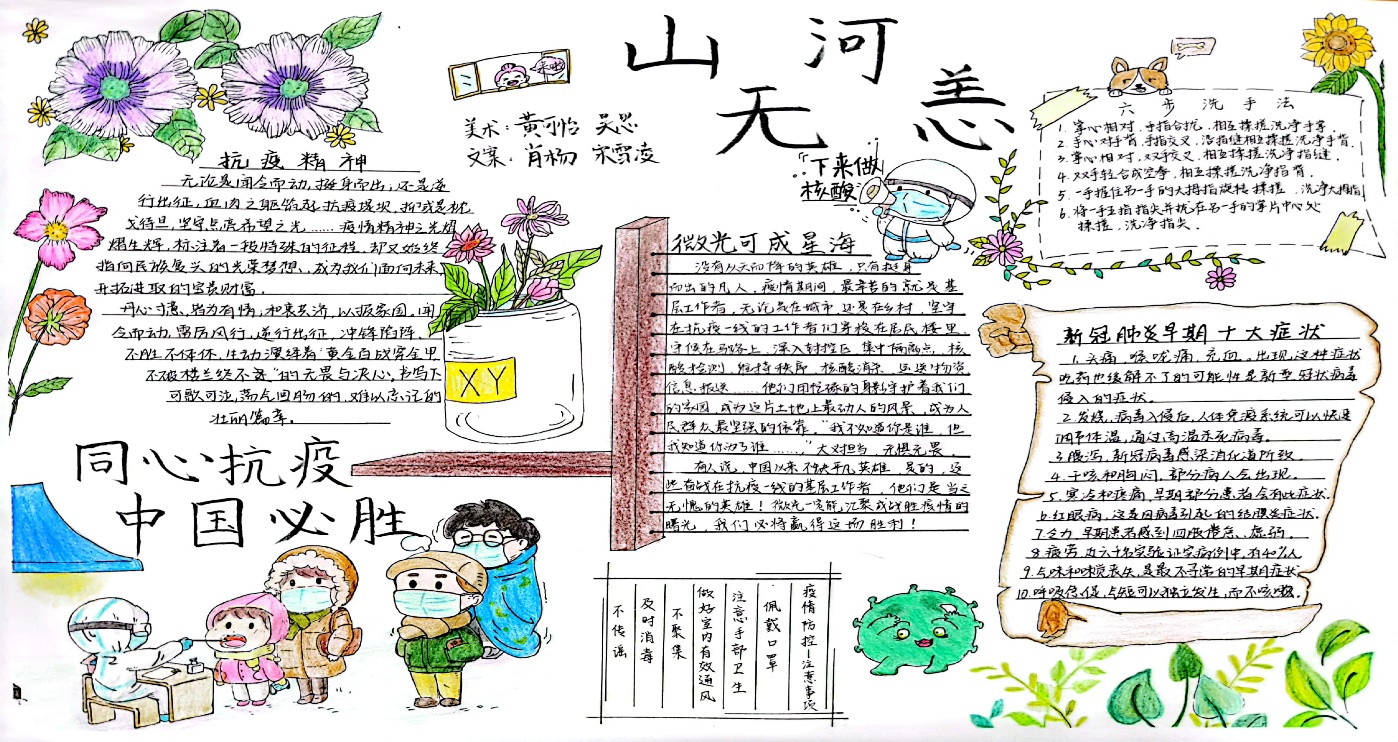 山河
无恙
来啦
美术:黄可怡 吴思
文案:肖杨 宋雪凌
抗疫精神
无论是闻令而动,挺身而出;还是逆
行出征,血肉之躯筑起抗疫堤坝,抑或是枕
戈待旦,坚守点亮希望之光……疫情精神之光熠
熠生辉,标注着一段特殊的征程,却又始终
指向民族复兴的光荣梦想、成为我们面向未来、
开拓进取的宝贵财富。
丹心寸意,皆为有情;和衷共济,以报家国,闻
令而动,雷厉风行,逆行出征,冲锋陷阵,
不胜不休,生动演绎着"黄金百战穿金甲
不破楼兰终不还"的无畏与决心,书写下
可歌可泣,荡气回肠的,难以忘记的
壮丽篇章。
XY
同心抗疫
中国必胜
"下来做
核酸"
微光可成星海
没有从天而降的英雄,只有挺身
而出的凡人,疫情期间,最辛苦的就是基
层工作者,无论是在城市,还是在乡村,坚守
在抗疫一线的工作者们穿梭在居民楼里,
守候在马路上,深入封控区,集中隔离点,核
酸检测,维持秩序,核酸消杀,运送物资
信息报送……他们用忙碌的身躯守护着我们
的家园,成为这片土地上最动人的风景,成为人
民群众最坚强的依靠,"我不知道你是谁,但
我知道你为了谁……",大义担当,无惧无畏,
有人说,中国从来不缺平凡英雄,是的,这
些奋战在抗疫一线的基层工作者,他们是当之
无愧的英雄!微光一定能汇聚成战胜疫情的
曙光,我们必将赢得这场胜利!
六步洗手法
1. 掌心相对,手指合扰,相互揉搓洗净手掌.
2. 手心对手背,手指交叉,沿指缝相互揉搓洗净手背.
3. 掌心相对,双手交叉,相互揉搓洗净指缝.
4. 双手轻合成空拳,相互揉搓洗净指背.
5. 一手握住另一手的大拇指旋转揉搓,洗净大拇指
6. 将一手五指指尖并扰在另一手的掌片中心处
揉搓,洗净指尖.
新冠肺炎早期十大症状
1.头痛,喉咙痛,充血,出现这种症状
吃药也缓解不了的可能性是新型冠状病毒
侵入的症状。
2.发烧,病毒入侵后,人体免疫系统可以快速
调节体温,通过高温杀死病毒。
3.腹泻,新冠病毒感染消化道所致。
4.干咳和胸闷,部分病人会出现。
5.寒冷和疼痛,早期部分患者会有此症状.
6.红眼病,这是因病毒引起的结膜炎症状.
7.乏力,早期患者感到四肢倦怠、虚弱.
9.与味和嗅觉丧失,是最不寻常的早期症状
疫情防控—注意事项
佩戴口罩
注意手部卫生
做好室内有效通风
不聚集
及时消毒
不传谣